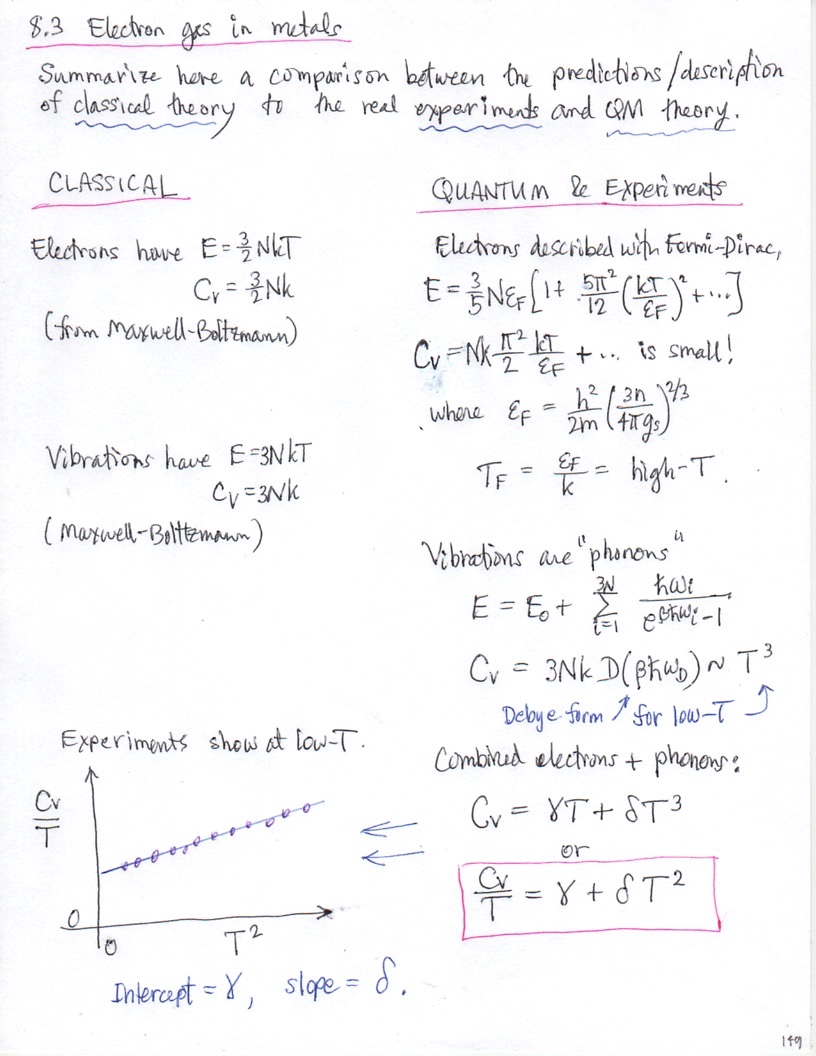 8.3 Electron gas in metals
Summarize here a comparison between the predictions/description
of classical theory to the real experiments and QM theory.
CLASSICAL
Electrons have E = 3/2 NkT
Cv = 3/2 Nk
(from Maxwell-Boltzmann)
Vibrations have E = 3NkT
Cv = 3Nk
(Maxwell-Boltzmann)
QUANTUM & Experiments
Electrons described with Fermi-Dirac,
E = 3/5 NεF [1 + 5π²/12 (kT/εF)² + ...]
Cv = Nk π²/2 kT/εF + ... is small!
where εF = h²/2m (3n/4πgs)^2/3
TF = εF/k = high-T.
Vibrations are "phonons"
E = E₀ + Σ_{i=1}^{3N} ħωi / (e^{βħωi} - 1)
Cv = 3Nk D(βħωD) ~ T³
Debye form ↗ for low-T
Combined electrons + phonons:
Cv = γT + δT³
or
Cv/T = γ + δT²
Experiments show at low-T.
Cv/T
0
0
T²
Intercept = γ, slope = δ.
149